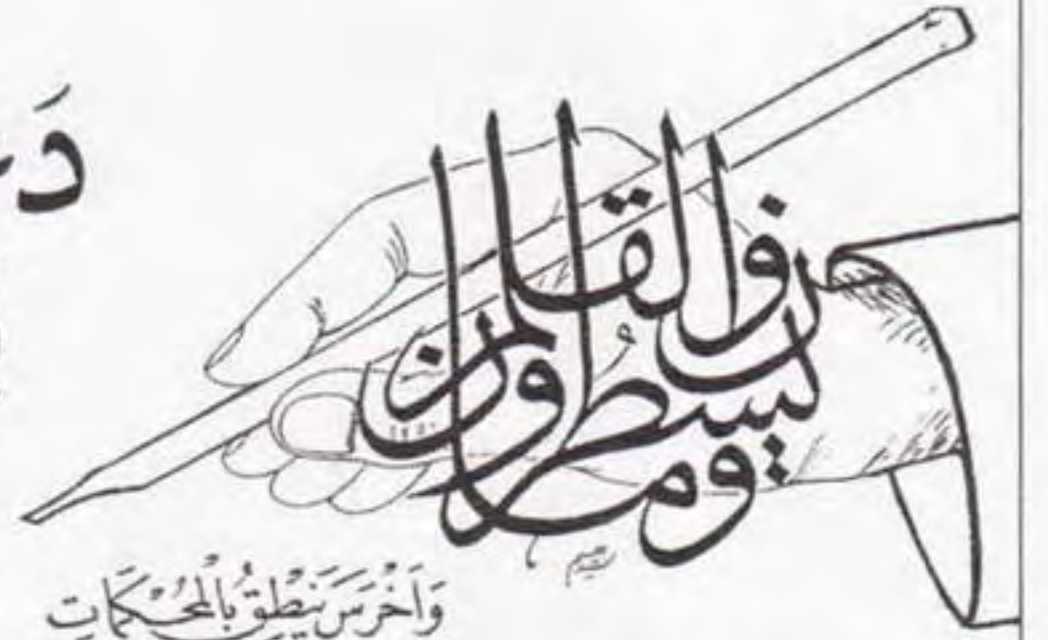 ن والقلم
وما يسطرون
وَاَخْرَسَ يَنْطِقُ بِالْمُحْكَمَاتِ